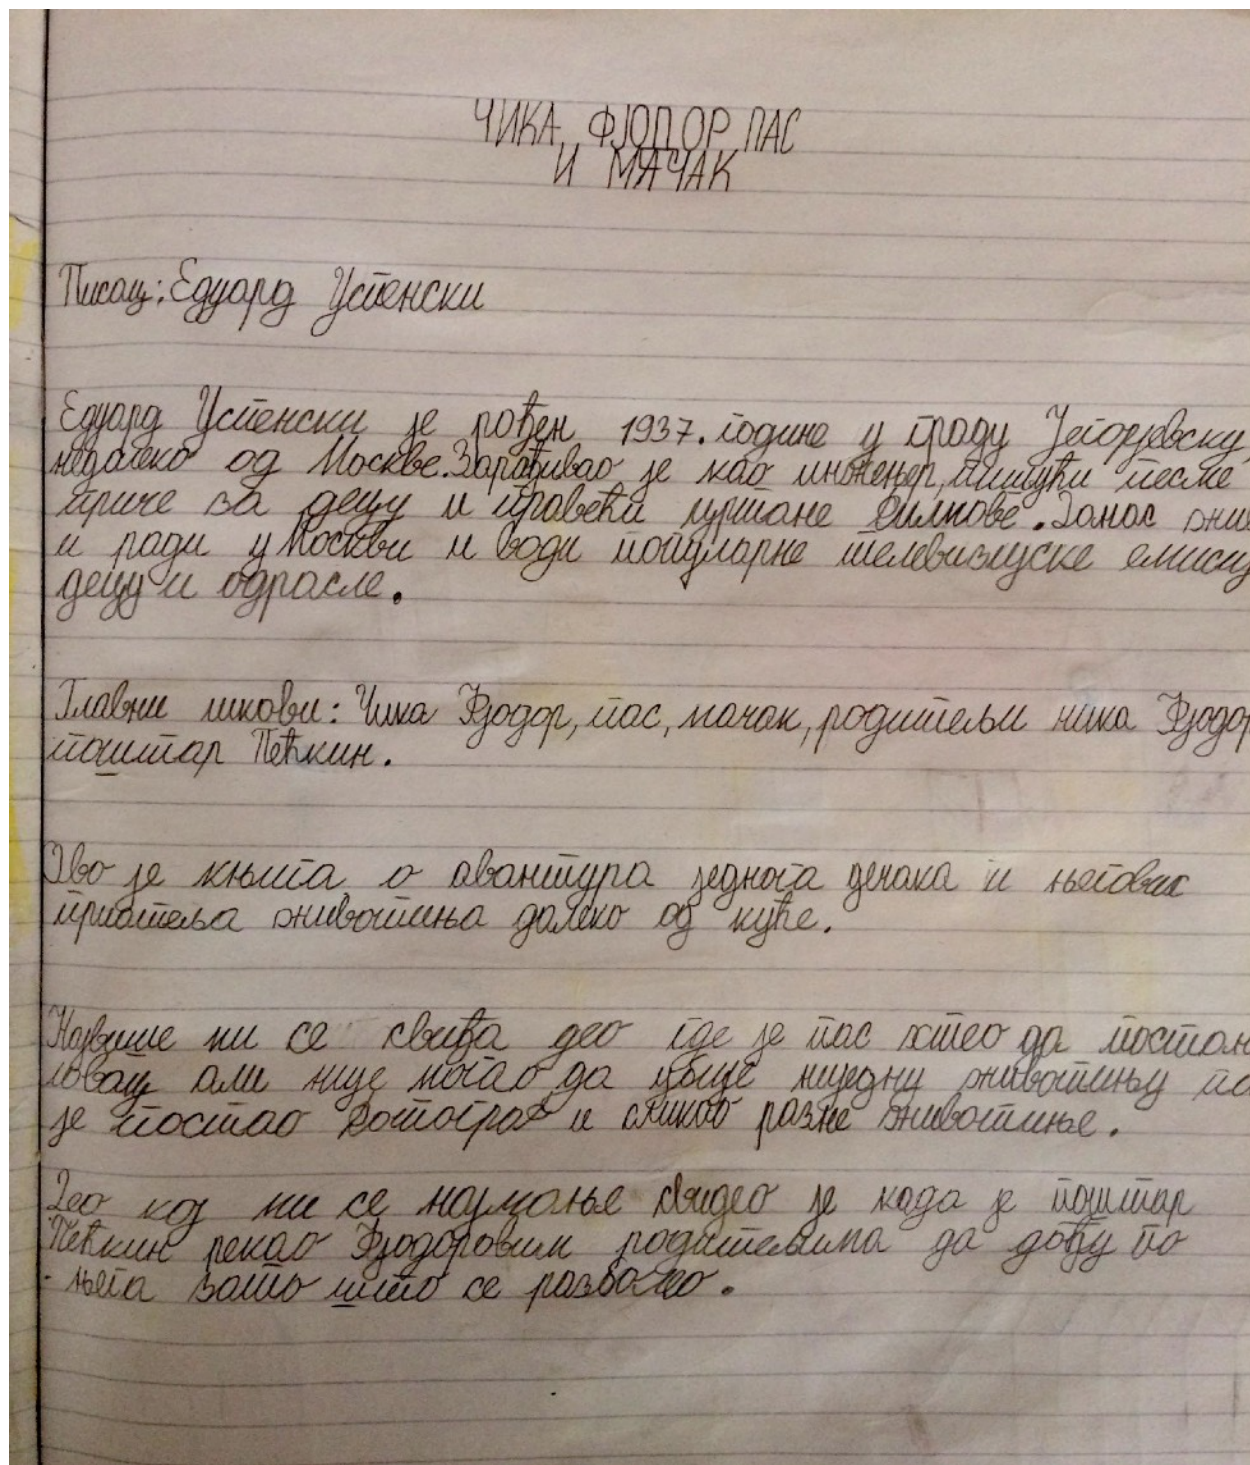 ЧИКА ФЈОДОР, ПАС
И МАЧАК
Писац: Едуард Успенски
Едуард Успенски је рођен 1937. године у граду Јегорјевску,
недалеко од Москве. Зарађивао је као инжењер, пишући песме
приче за децу и правећи цртане филмове. Данас жив
и ради у Москви и води популарне телевизијске емисиј
децу и одрасле.
Главни ликови: Чика Фјодор, пас, мачак, родитељи чика Фјодор
поштар Пећкин.
Ово је књига о авантура једнога дечака и његових
пријатеља животиња далеко од куће.
Највише ми се свиђа део где је пас хтео да постан
ловац али није могао да убије ниједну животињу па
је постао фотограф и сликао разне животиње.
Део кој ми се најмање свидео је када је поштар
Пећкин рекао Фјодоровим родитељима да дођу по
њега зато што се разболео.